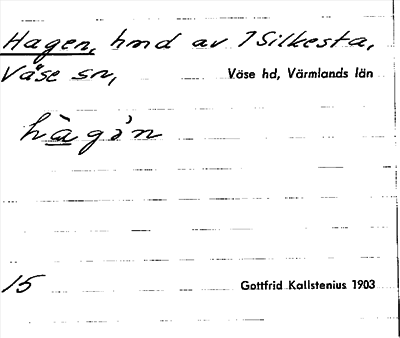 Hagen, hmd av 7 Silkesta,
Väse sn, Väse hd, Värmlands län
hàgı'n
15 Gottfrid Kallstenius 1903